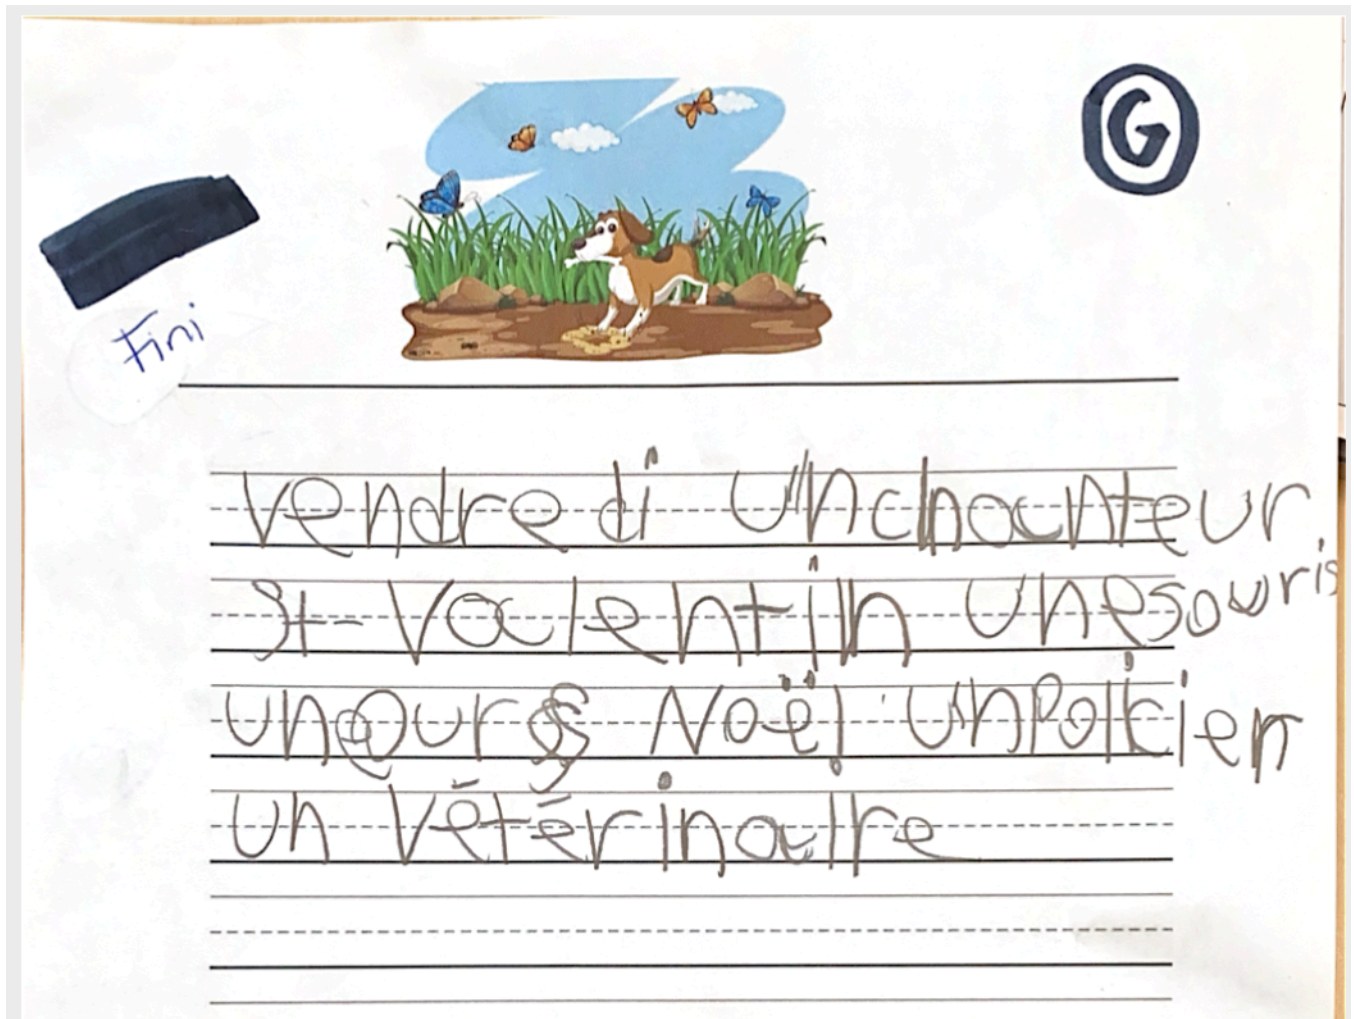 G
Fini
Vendredi Unchanteur
St-Valentin Unesouris
unours Noël UnPolicier
un Vétérinaire